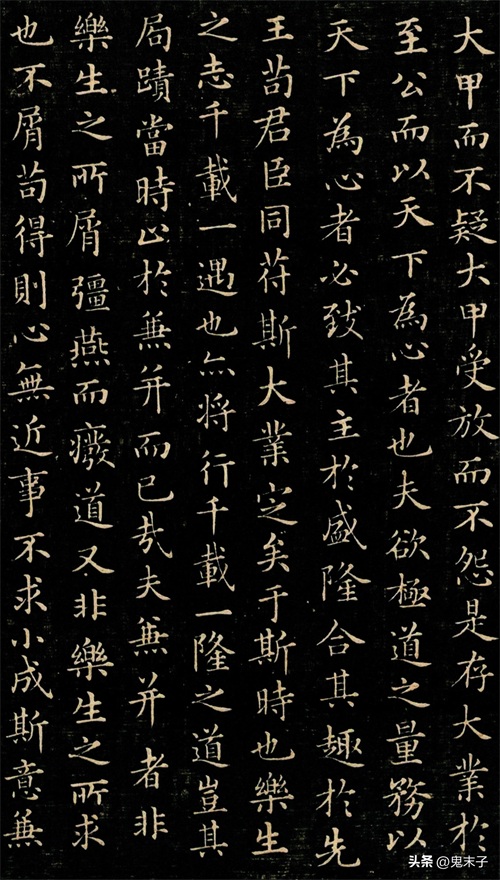 大甲而不疑大甲受放而不怨是存大業於
至公而以天下為心者也夫欲極道之量務以
天下為心者必致其主於盛隆合其趣於先
王苟君臣同苻斯大業定矣于斯時也樂生
之志千載一遇也亦將行千載一隆之道豈其
局蹟當時止於兼并而已哉夫兼并者非
樂生之所屑彊燕而癈道又非樂生之所求
也不屑苟得則心無近事不求小成斯意兼
头条 @鬼末子